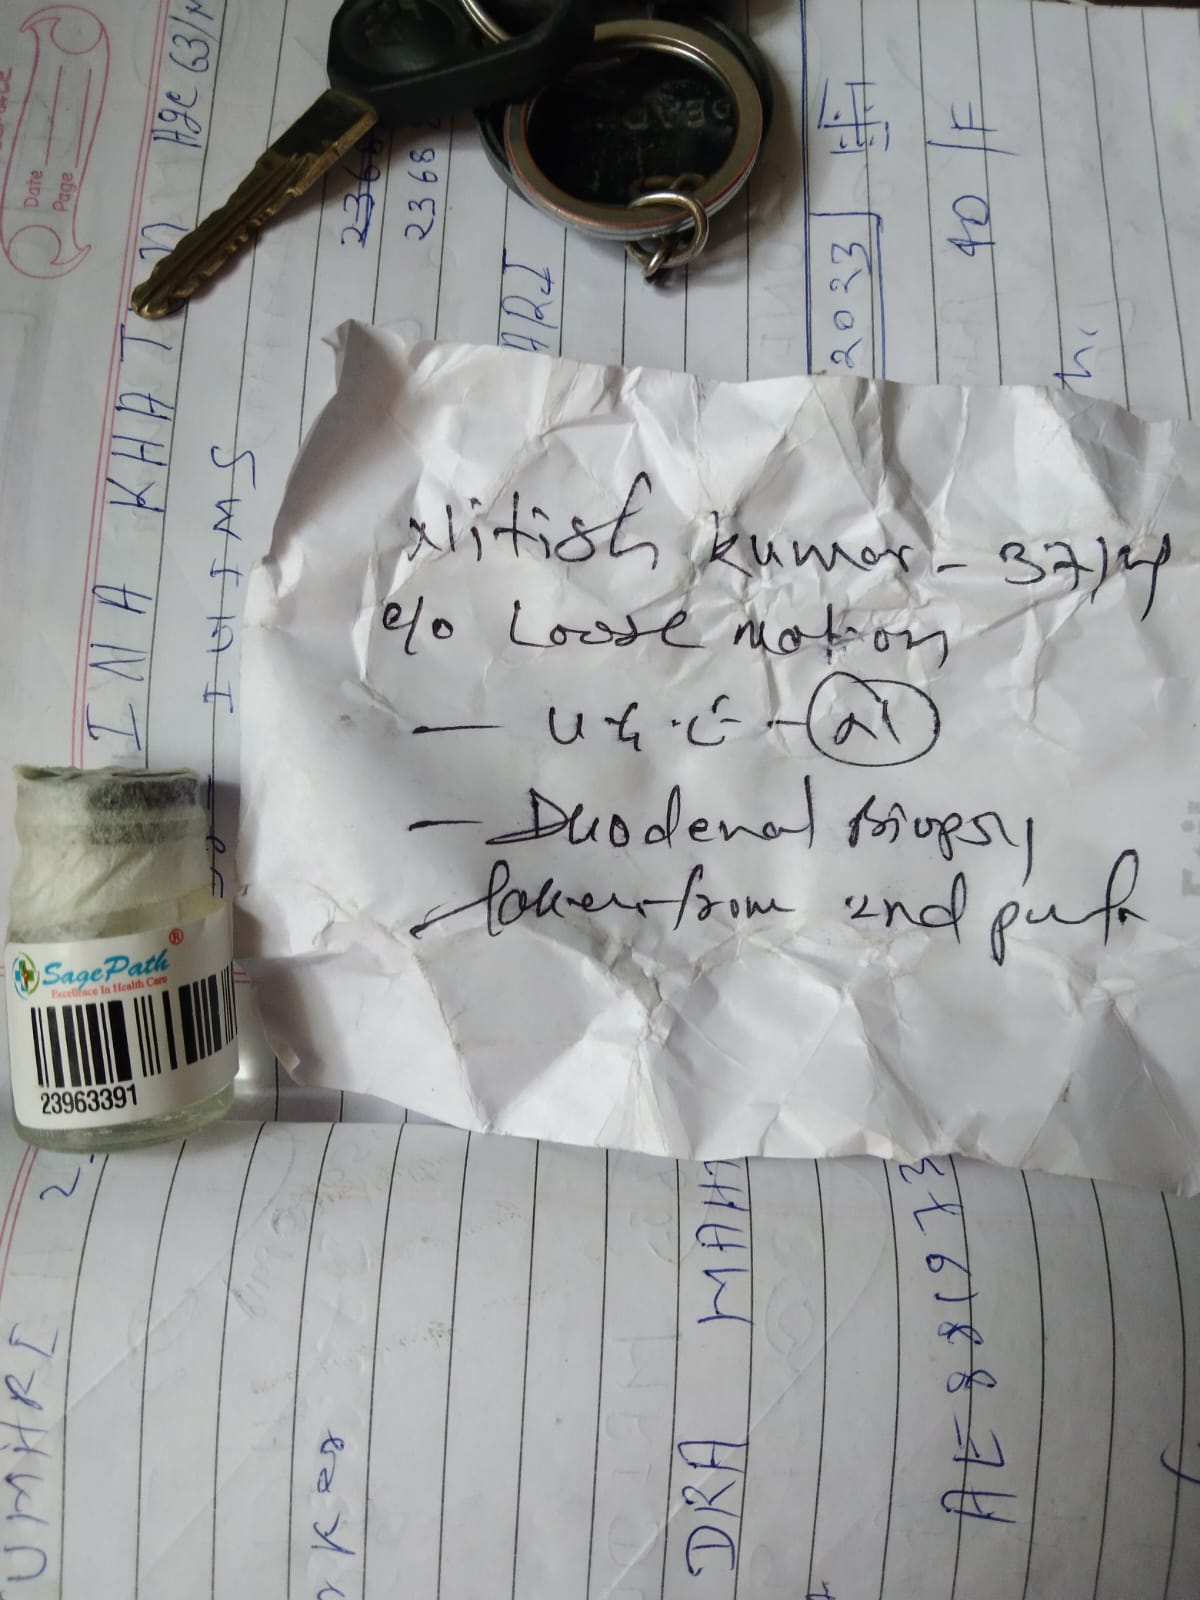 Nitish Kumar - 37/M
c/o Loose motion
- U G I E - N
- Duodenal Biopsy
taken from 2nd part
SagePath®
Excellence In Health Care
23963391
Date
Page
INA KHAT
AGE 63/
IGIMS
2368
2368
ARI
2033
40/F
DRA MAHT
AE881973
UMHRI
Ker